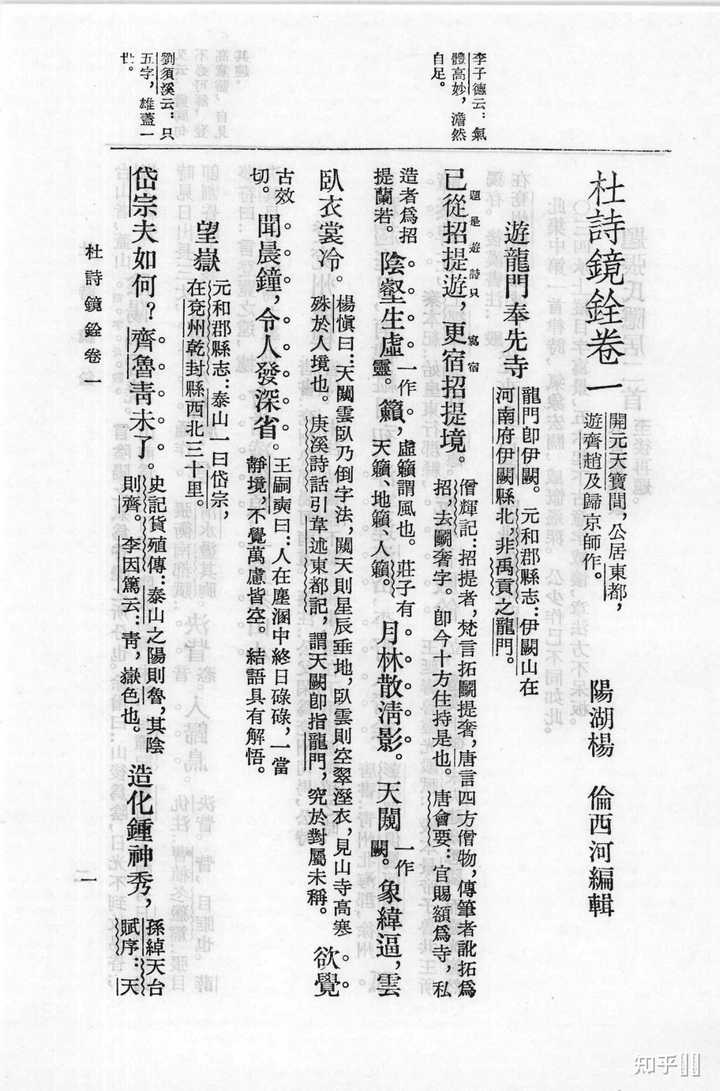 李子德云：氣
體高妙，澹然
自足。
劉須溪云：只
五字，雄蓋一
世。
杜詩鏡銓卷一
開元天寶間，公居東都，
遊齊趙及歸京師作。
陽湖楊 倫西河編輯
遊龍門奉先寺
龍門卽伊闕。元和郡縣志：伊闕山在
河南府伊闕縣北，非禹貢之龍門。
已從招提遊，更宿招提境。
題是遊詩只
寫宿
僧輝記：招提者，梵言拓鬭提奢，唐言四方僧物，傳筆者訛拓爲
招，去鬭奢字。卽今十方住持是也。唐會要：官賜額爲寺，私
造者爲招
提蘭若。
陰壑生虛
一作
靈。
籟，
虛籟謂風也。莊子有
天籟、地籟、人籟。
月林散淸影。天闚
一作
闕。
象緯逼，雲
臥衣裳冷。
楊愼曰：天闚雲臥乃倒字法，闚天則星辰垂地，臥雲則空翠溼衣，見山寺高寒
殊於人境也。庚溪詩話引韋述東都記，謂天闕卽指龍門，究於對屬未稱。
欲覺
古效
切。
聞晨鐘，令人發深省。
王嗣奭曰：人在塵溷中終日碌碌，一當
靜境，不覺萬慮皆空。結語具有解悟。
望嶽
元和郡縣志：泰山一曰岱宗，
在兗州乾封縣西北三十里。
岱宗夫如何？齊魯靑未了。
史記貨殖傳：泰山之陽則魯，其陰
則齊。李因篤云：靑，嶽色也。
造化鍾神秀，
孫綽天台
賦序：天
杜詩鏡銓卷一
一
知乎